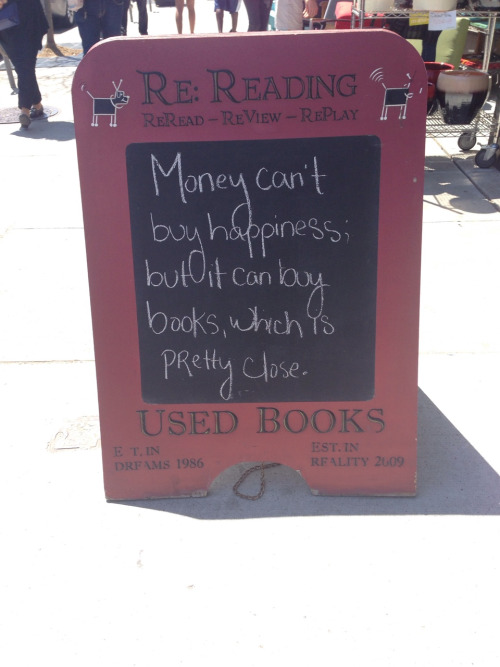 RE: READING
REREAD - REVIEW - REPLAY
Money can't
buy happiness;
but it can buy
books, which is
pretty close.
USED BOOKS
E T. IN
DREAMS 1986
EST. IN
REALITY 2009